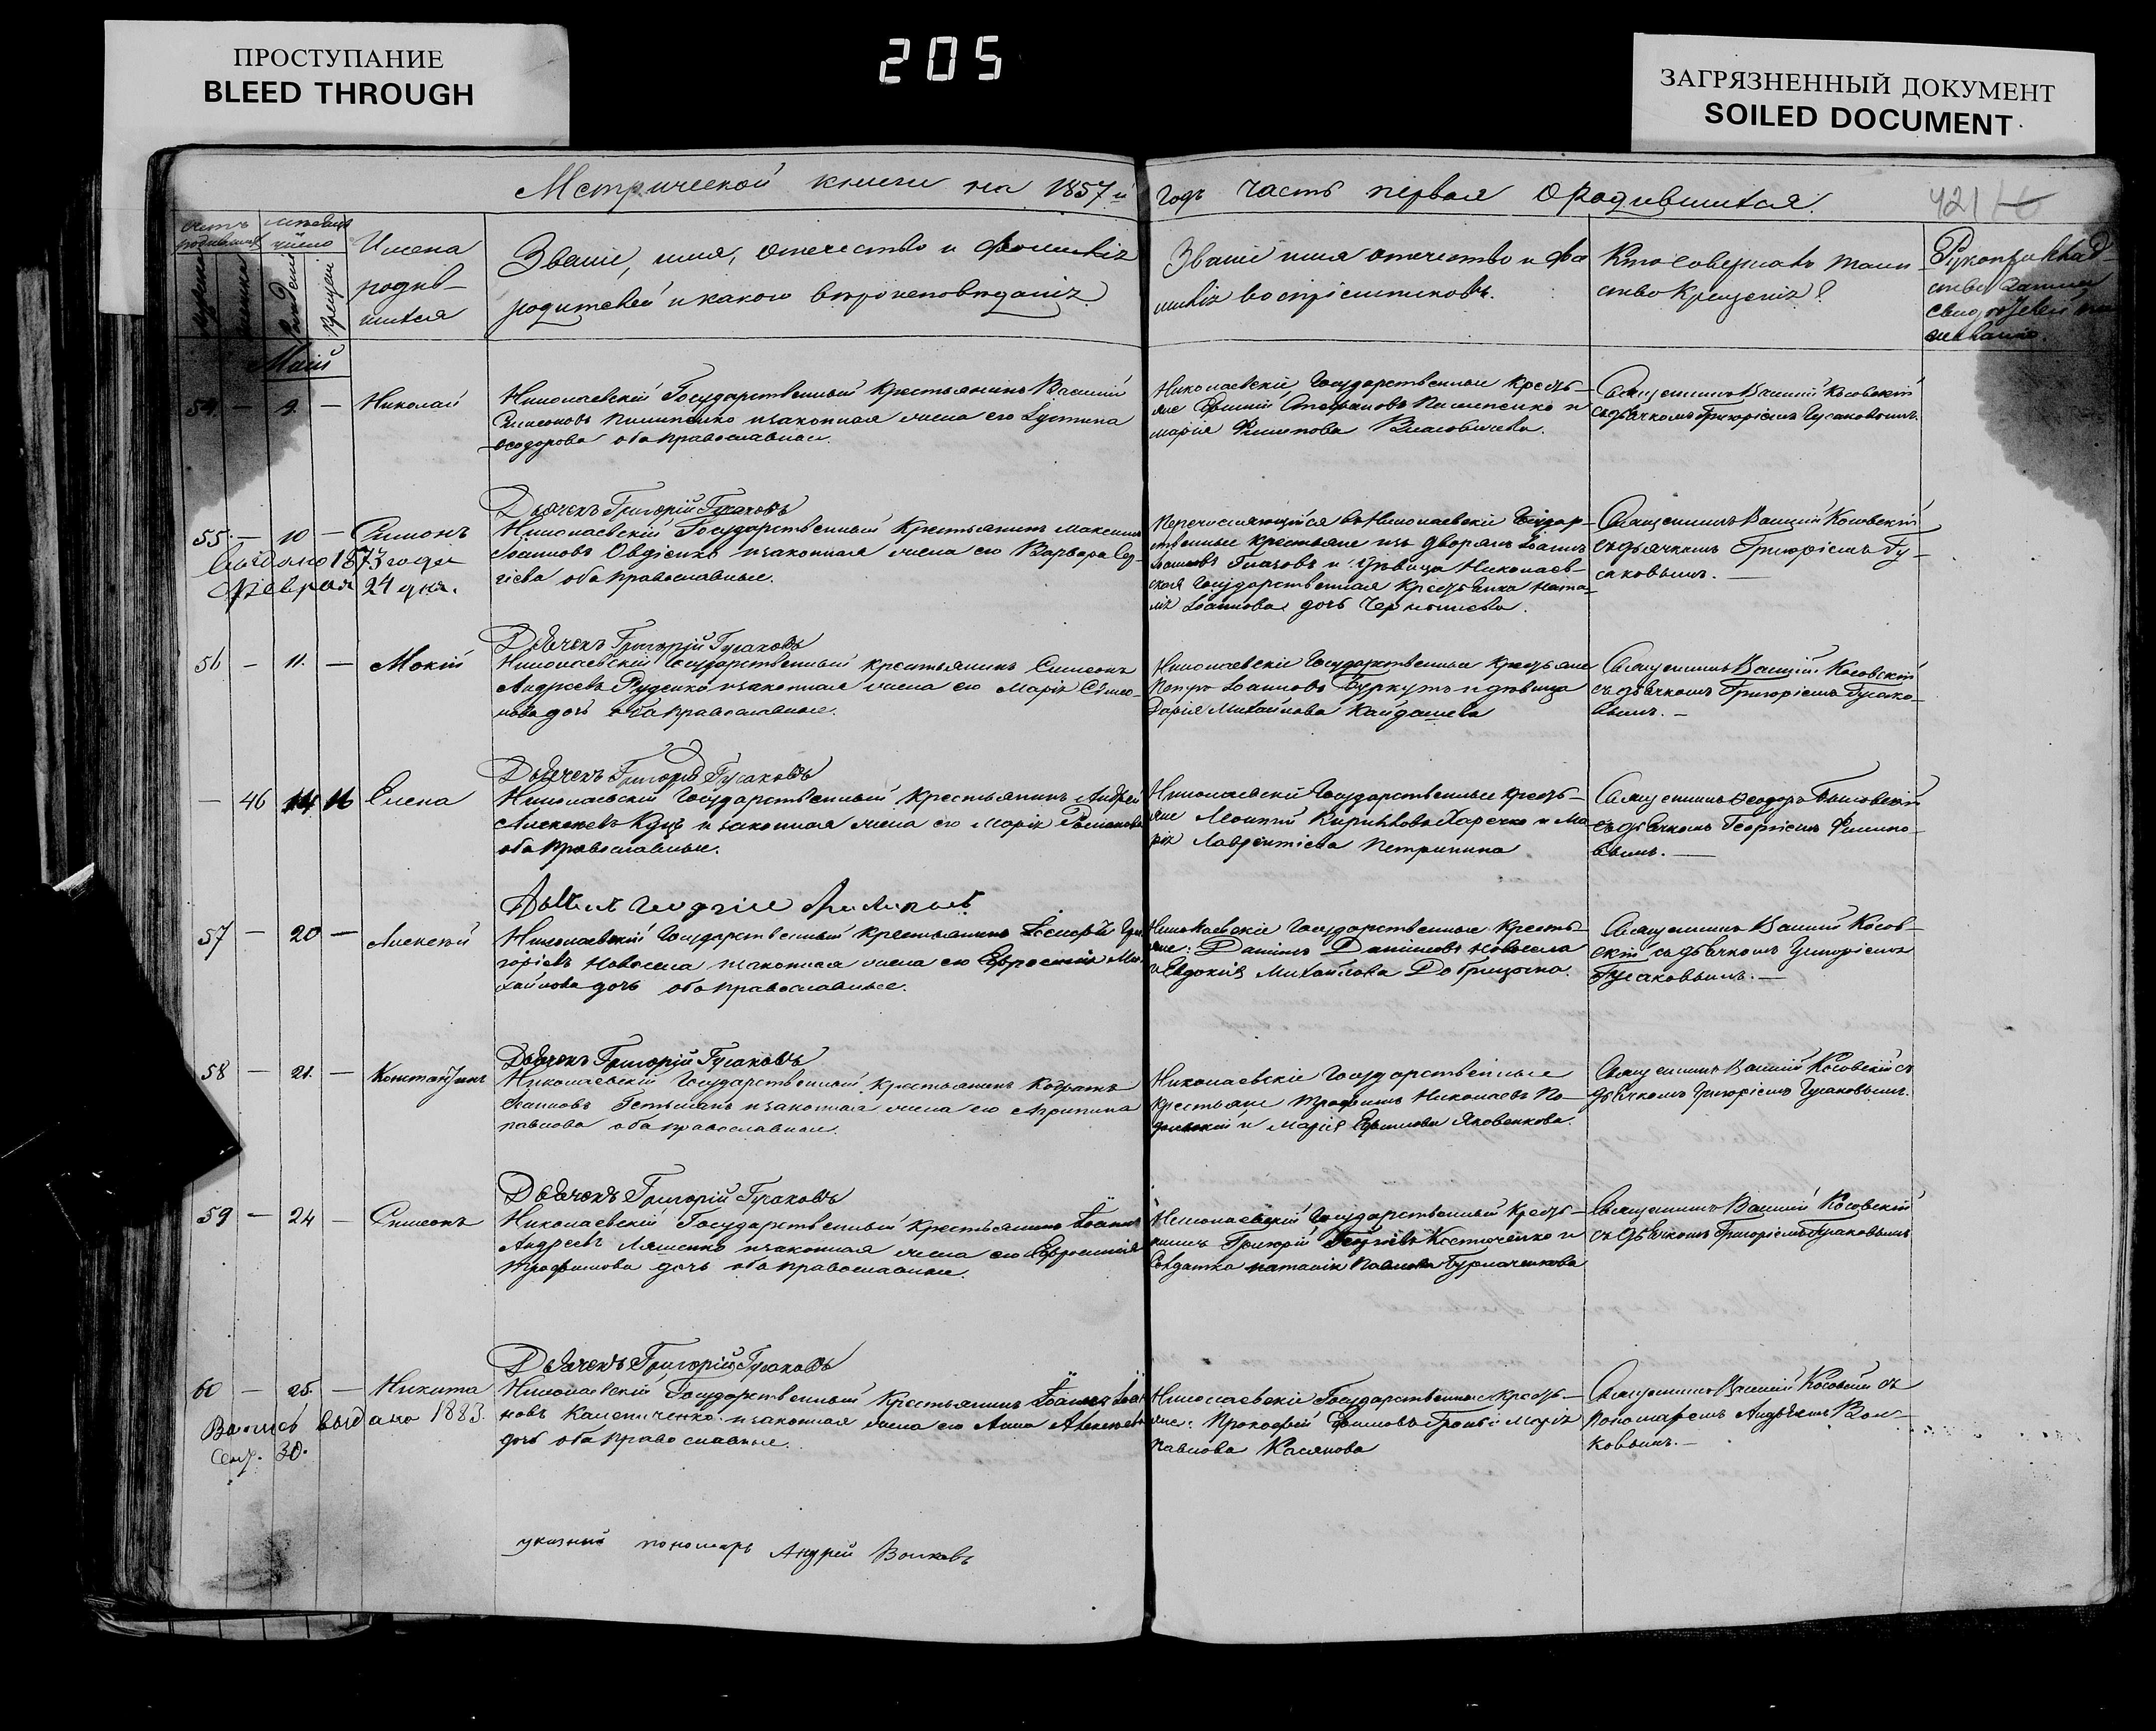 ПРОСТУПАНИЕ
BLEED THROUGH
205
ЗАГРЯЗНЕННЫЙ ДОКУМЕНТ
SOILED DOCUMENT
Метрической книги на 1857й годъ часть первая о родившихся.
421
Имена родив-шихся
Званіе, имя, отечество и фамилія
родителей и какого вѣроисповѣданія
Званіе имя отечество и фа
милія воспріемниковъ.
Кто совершалъ таин-
ство крещенія?
Май
54. — 9. — Николай
Николаевскій Государственный Крестьянинъ Василий
Симеоновъ Пилипенко и законная жена его Іустина
Ѳеодорова оба православные.
Николаевскіе Государственные Кресть-
яне Стефановъ Пилипенко и
Марія Филипова
Священникъ Василій Косовскій
съ дьячкомъ Григоріемъ Гусаковымъ.
Дьячекъ Григорій Гусаковъ
55. — 10 — Симонъ
Выдано 1873 года
Февраля 24 дня.
Николаевскій Государственный Крестьянинъ Максимъ
Іоанновъ Овдіенко и законная жена его Варвара Сер-
гіева оба православные.
Перечисляющійся въ Николаевскіе Государ-
ственные крестьяне изъ дворянъ Іоаннъ
Іоанновъ и дѣвица Николаев-
ская Государственная Крестьянка Ната-
лія Іоаннова дочь
Священникъ Василій Косовскій
съ дьячкомъ Григоріемъ Гу-
саковымъ. —
Дьячекъ Григорій Гусаковъ
56 — 11. — Мокій
Николаевскій Государственный крестьянинъ Симеонъ
Андреевъ Руденко и законная жена его Марія Симео-
нова дочь оба православные.
Николаевскіе Государственные крестьяне
Петръ Іоанновъ Буркутъ и дѣвица
Дарія Михайлова Кайдашева
Священникъ Василій Косовскій
съ дьячкомъ Григоріемъ Гусако-
вымъ. —
Дьячекъ Григорій Гусаковъ
— 46 14 16 Елена
Николаевскій Государственный Крестьянинъ Андрей
Алексѣевъ Куцъ и законная жена его Марія Романова
оба православные.
Николаевскіе Государственные кресть-
яне Моисей Кирилловъ Харечко и Ма-
рія Лаврентіева Петрикина
Священникъ Ѳеодоръ
съ дьячкомъ Георгіемъ Филипо-
вымъ. —
Дьячекъ Георгій Филиповъ
57 — 20 — Алексѣй
Николаевскій Государственный крестьянинъ Гри
горіевъ Новосела и законная жена его Евросинія Ми-
хайлова дочь оба православные.
Николаевскіе Государственные Кресть-
яне: Даніилъ Данииловъ Новосела
и Евдокія Михайлова Добрицына.
Священникъ Василій Косов-
скій съ дьячкомъ Григоріемъ
Гусаковымъ. —
Дьячекъ Григорій Гусаковъ
58 — 21. — Константинъ
Николаевскій Государственный крестьянинъ Кодратъ
Іоанновъ Гетьманъ и законная жена его Агрипина
Павлова оба православные.
Николаевскіе Государственные
крестьяне Трофимъ Николаевъ По-
дольскій и Марія Ефимова Яковенкова.
Священникъ Василій Косовскій съ
дьячкомъ Григоріемъ Гусаковымъ.
Дьячекъ Григорій Гусаковъ
59 — 24 — Симеонъ
Николаевскій Государственный крестьянинъ Іоаннъ
Андреевъ Ляшенко и законная жена его Евфросинія
Трофимова дочь оба православные.
Николаевскій Государственный Кресть-
янинъ Григорій Георгіевъ Костюченко и
Солдатка Наталія Павлова Бурлаченкова
Священникъ Василій Косовскій
съ дьячкомъ Григоріемъ Гусаковымъ
Дьячекъ Григорій Гусаковъ
60 — 25. — Никита
выдана 1883.
Сент. 30.
Николаевскій Государственный Крестьянинъ Іоаннъ Іоан-
новъ Калениченко и законная жена его Анна Алексѣева
дочь оба православные.
Николаевскіе Государственные Кресть-
яне: Прокофій Ефимовъ и Марія
Павлова Касянова
Священникъ Василій Косовскій съ
пономаремъ Андреемъ Вол-
ковымъ. —
указный пономарь Андрей Волковъ